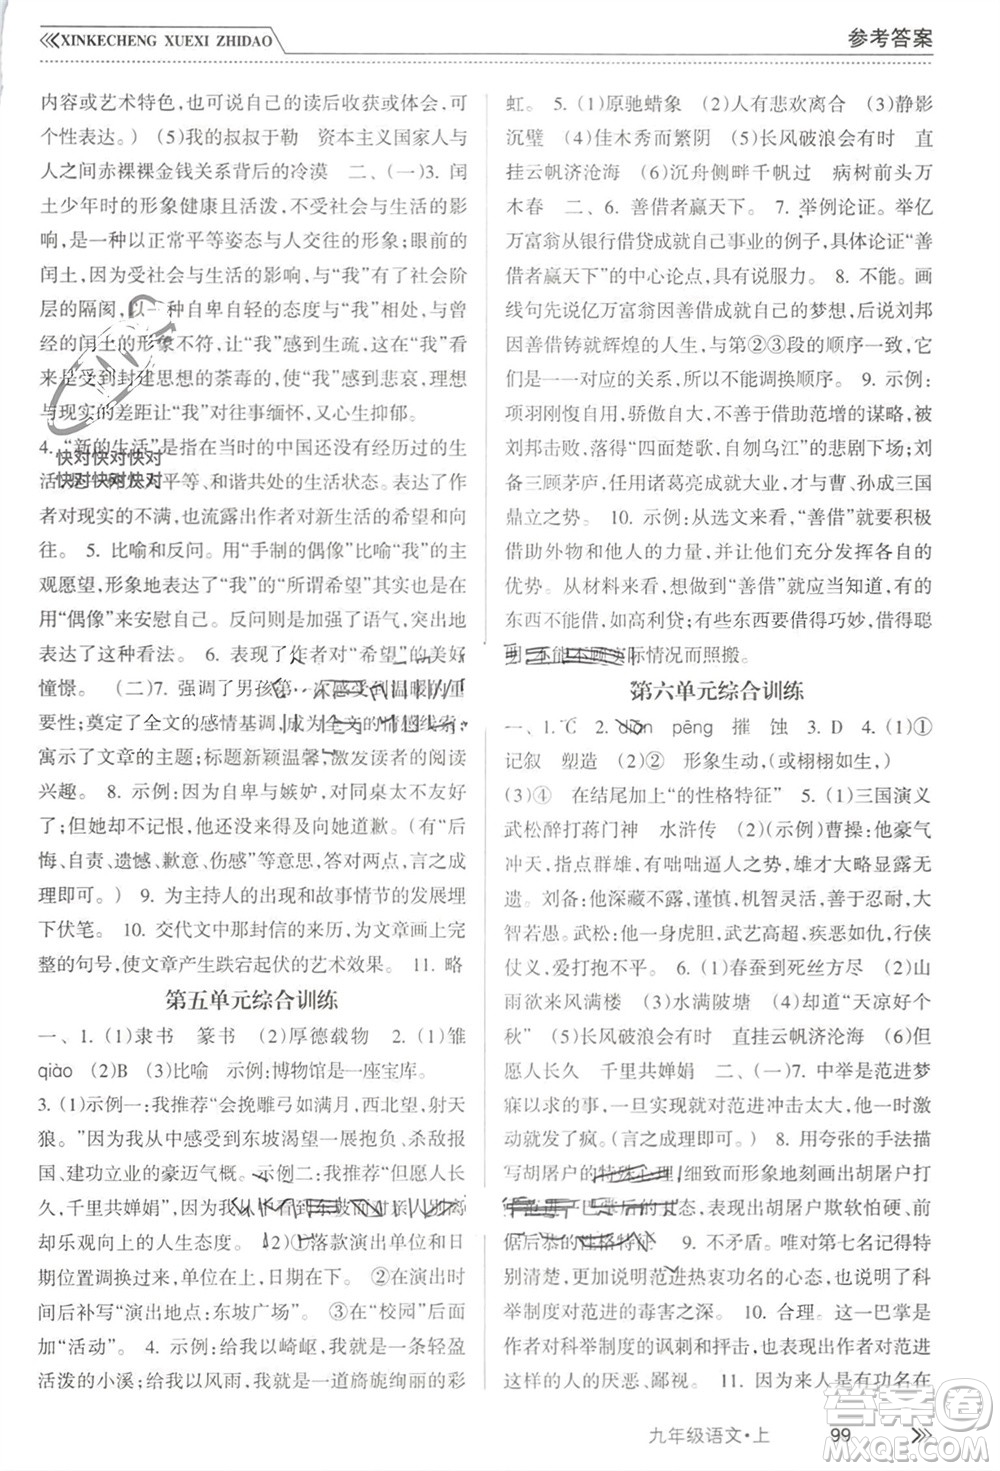 XINKECHENG XUEXI ZHIDAO
参考答案
内容或艺术特色,也可说自己的读后收获或体会,可
个性表达。) (5)我的叔叔于勒 资本主义国家人与
人之间赤裸裸金钱关系背后的冷漠 二、(一)3. 闰
土少年时的形象健康且活泼,不受社会与生活的影
响,是一种以正常平等姿态与人交往的形象;眼前的
闰土,因受社会与生活的影响,在与“我”有了社会阶
层的隔阂,以一种自卑自轻的态度与“我”相处,与曾
经的闰土的形象不符,让“我”感到生疏,这在“我”看
来是受到封建思想的荼毒的,使“我”感到悲哀,理想
与现实的差距让“我”对往事缅怀,又心生抑郁。
4. “新的生活”是指在当时的中国还没有经历过的生
活,是 平等、和谐共处的生活状态。表达了作
者对现实的不满,也流露出作者对新生活的希望和向
往。 5. 比喻和反问。用“手制的偶像”比喻“我”的主
观愿望,形象地表达了“我”的“所谓希望”其实也是
用“偶像”来安慰自己。反问则是加强了语气,突出地
表达了这种看法。 6. 表现了作者对“希望”的美好
憧憬。 (二)7. 强调了男孩第一次感受到温暖的重
要性;奠定了全文的感情基调,
寓示了文章的主题;标题新颖温馨,激发读者的阅读
兴趣。 8. 示例:因为自卑与嫉妒,对同桌太不友好
了,但她却不记恨,他还没有来得及向她道歉。(有“后
悔、自责、遗憾、歉意、伤感”等意思,答对两点,言之成
理即可。) 9. 为主持人的出现和故事情节的发展埋
下伏笔。 10. 交代文中那封信的来历,为文章画上完
整的句号,使文章产生跌宕起伏的艺术效果。 11. 略
第五单元综合训练
一、1. (1)隶书 篆书 (2)厚德载物 2. (1)雏
qiào (2)B (3)比喻 示例:博物馆是一座宝库。
3. (1)示例一:我推荐“会挽雕弓如满月,西北望,射天
狼。”因为我从中感受到东坡渴望一展抱负、杀敌报
国、建功立业的豪迈气概。 示例二:我推荐“但愿人长
久,千里共婵娟”。因为我从中看到东坡面对亲人的离
却乐观向上的人生态度。 (2)①落款演出单位与日
期的位置调换过来,单位在上,日期在下。 ②在演出时
间后补写“演出地点:东坡广场”。 ③在“校园”后面
加“活动”。 4. 示例:给我以崎岖,我就是一条轻盈
活泼的小溪;给我以风雨,我就是一道旖旎绚丽的彩
虹。 5. (1)原驰蜡象 (2)人有悲欢离合 (3)静影
沉璧 (4)佳木秀而繁阴 (5)长风破浪会有时 直
挂云帆济沧海 (6)沉舟侧畔千帆过 病树前头万
木春 二、6. 善借者赢天下。 7. 举例论证。举亿
万富翁从银行借贷成就自己事业的例子,具体论证“善
借者赢天下”的中心论点,具有说服力。 8. 不能。画
线句先说亿万富翁因善借成就自己的梦想,后说刘邦
因善借铸就辉煌的人生,与第②③段的顺序一致,它
们是一一对应的关系,所以不能调换顺序。 9. 示例:
项羽刚愎自用,骄傲自大,不善于借助范增的谋略,被
刘邦击破,落得“四面楚歌,自刎乌江”的悲剧下场;刘
备三顾茅庐,借助诸葛亮成大业,才与曹、孙成三国
鼎立之势。 10. 示例:从选文来看,“善借”就要积极
借助外物和他人的力量,并让他们充分发挥各自的
优势。 从材料来看,“善借”还应当知道,有的
东西不能借,如高利贷;有些东西要借得巧妙,借得聪
明,不能不顾实际情况而照搬。
第六单元综合训练
一、1. C 2. diān pēng 摧 蚀 3. D 4. (1)①
记叙 塑造 (2)② 形象生动,(或栩栩如生,)
(3)④ 在结尾加上“的性格特征” 5. (1)三国演义
武松醉打蒋门神 水浒传 (2)(示例)曹操:他豪气
冲天,指点群雄,有咄咄逼人之势,雄才大略显露无
遗。刘备:他深藏不露,谨慎,机智灵活,善于忍耐,大
智若愚。武松:他一身虎胆,武艺高强,疾恶如仇,行侠
仗义,爱打抱不平。 6. (1)春蚕到死丝方尽 (2)山
雨欲来风满楼 (3)水满陂塘 (4)却道“天凉好个
秋” (5)长风破浪会有时 直挂云帆济沧海 (6)但
愿人长久 千里共婵娟 二、(一)7. 中举是范进梦
寐以求的事,因为长久的失望对范进冲击太大,导致他
发了疯。(言之成理即可。) 8. 用夸张的手法描
写胡屠户的特殊心理,细致而形象地刻画出胡屠户打
了范进一巴掌后的不安,突出了胡屠户欺软怕硬、前
倨后恭的性格特征。 9. 不矛盾。唯对第七名记得特
别清楚,正体现了范进热衷功名的心态,也说明了科
举制度对范进的毒害之深。 10. 合理。这一巴掌是
作者对科举制度的讽刺和抨击,也表现出作者对范进
这样的人的厌恶、鄙视。 11. 因为从来都是有功名在
九年级语文·上
99
快对快对快对
快对快对快对
答案圈
MXQE.COM